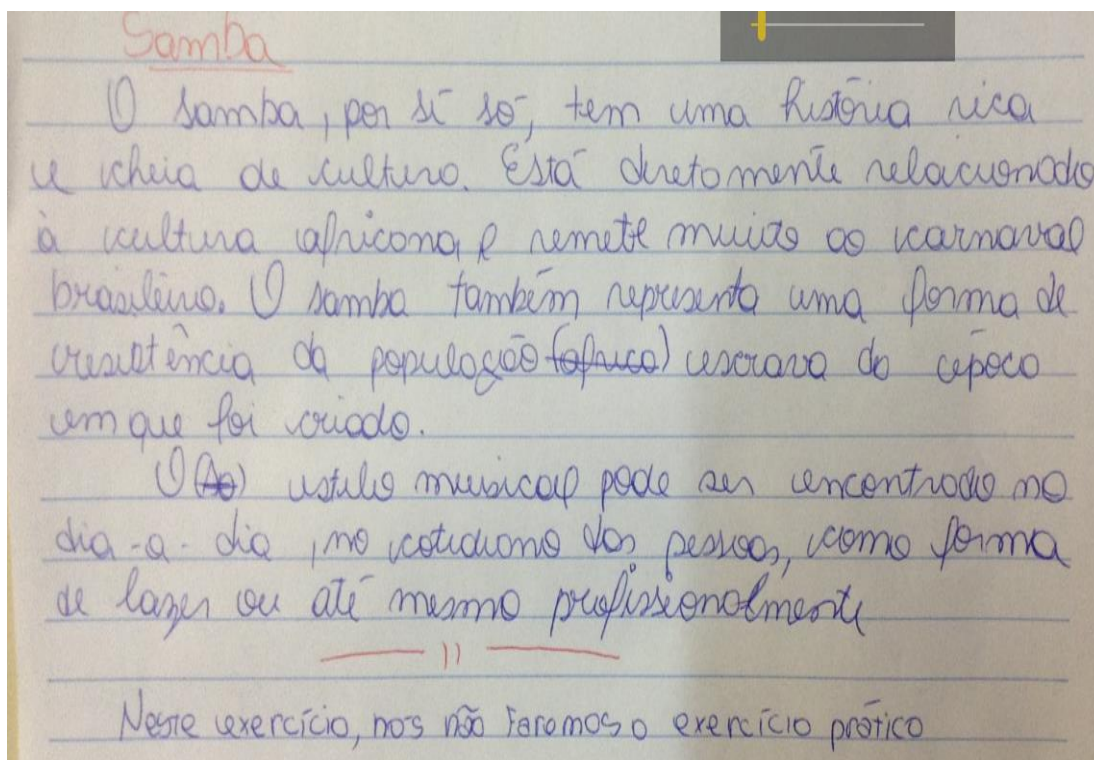 Samba
O samba, por si só, tem uma história rica
e cheia de cultura. Está diretamente relacionado
à cultura africana, e remete muito ao carnaval
brasileiro. O samba também representa uma forma de
resistência da população (africa) escrava da época
em que foi criado.
O (Ao) estilo musical pode ser encontrado no
dia-a-dia, no cotidiano das pessoas, como forma
de lazer ou até mesmo profissionalmente
Neste exercício, nós não faremos o exercício prático